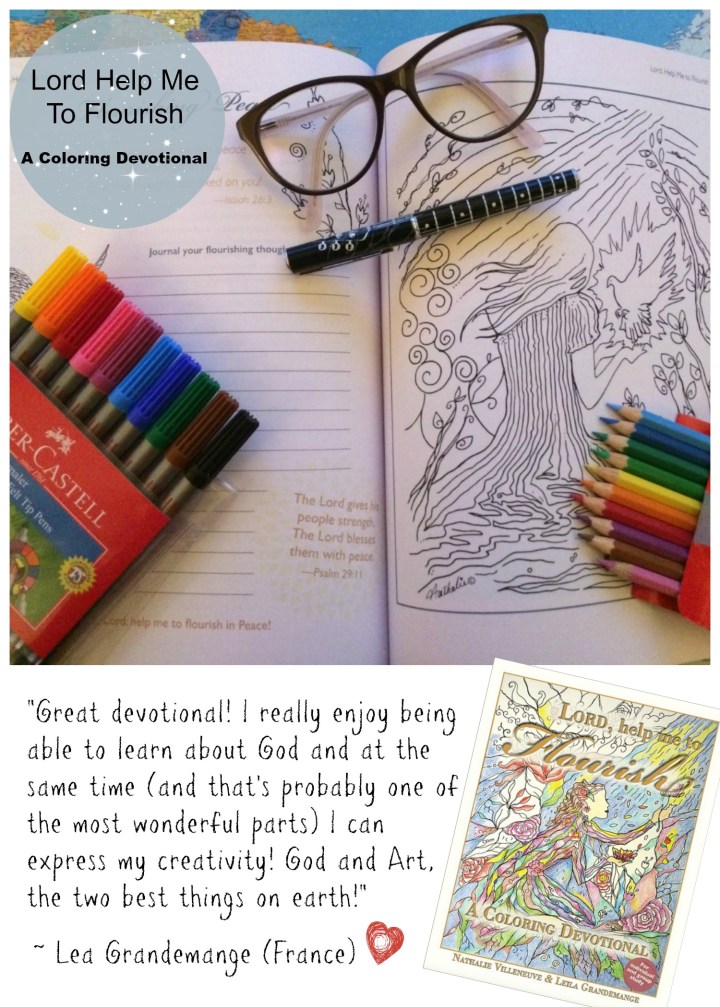 Lord Help Me
To Flourish
A Coloring Devotional
Lord, Help Me to Flourish
on you!
—Isaiah 26:3
Journal your flourishing
The Lord gives his
people strength.
The Lord blesses
them with peace.
—Psalm 29:11
Lord, help me to flourish in Peace!
Nathalie©
ER-CASTELL
Felt Tip Pens
"Great devotional! I really enjoy being
able to learn about God and at the
same time (and that's probably one of
the most wonderful parts) I can
express my creativity! God and Art,
the two best things on earth!"
~ Lea Grandemange (France)
LORD, help me to
Flourish
A COLORING DEVOTIONAL
For individual and group study
NATHALIE VILLENEUVE & LEILA GRANDEMANGE